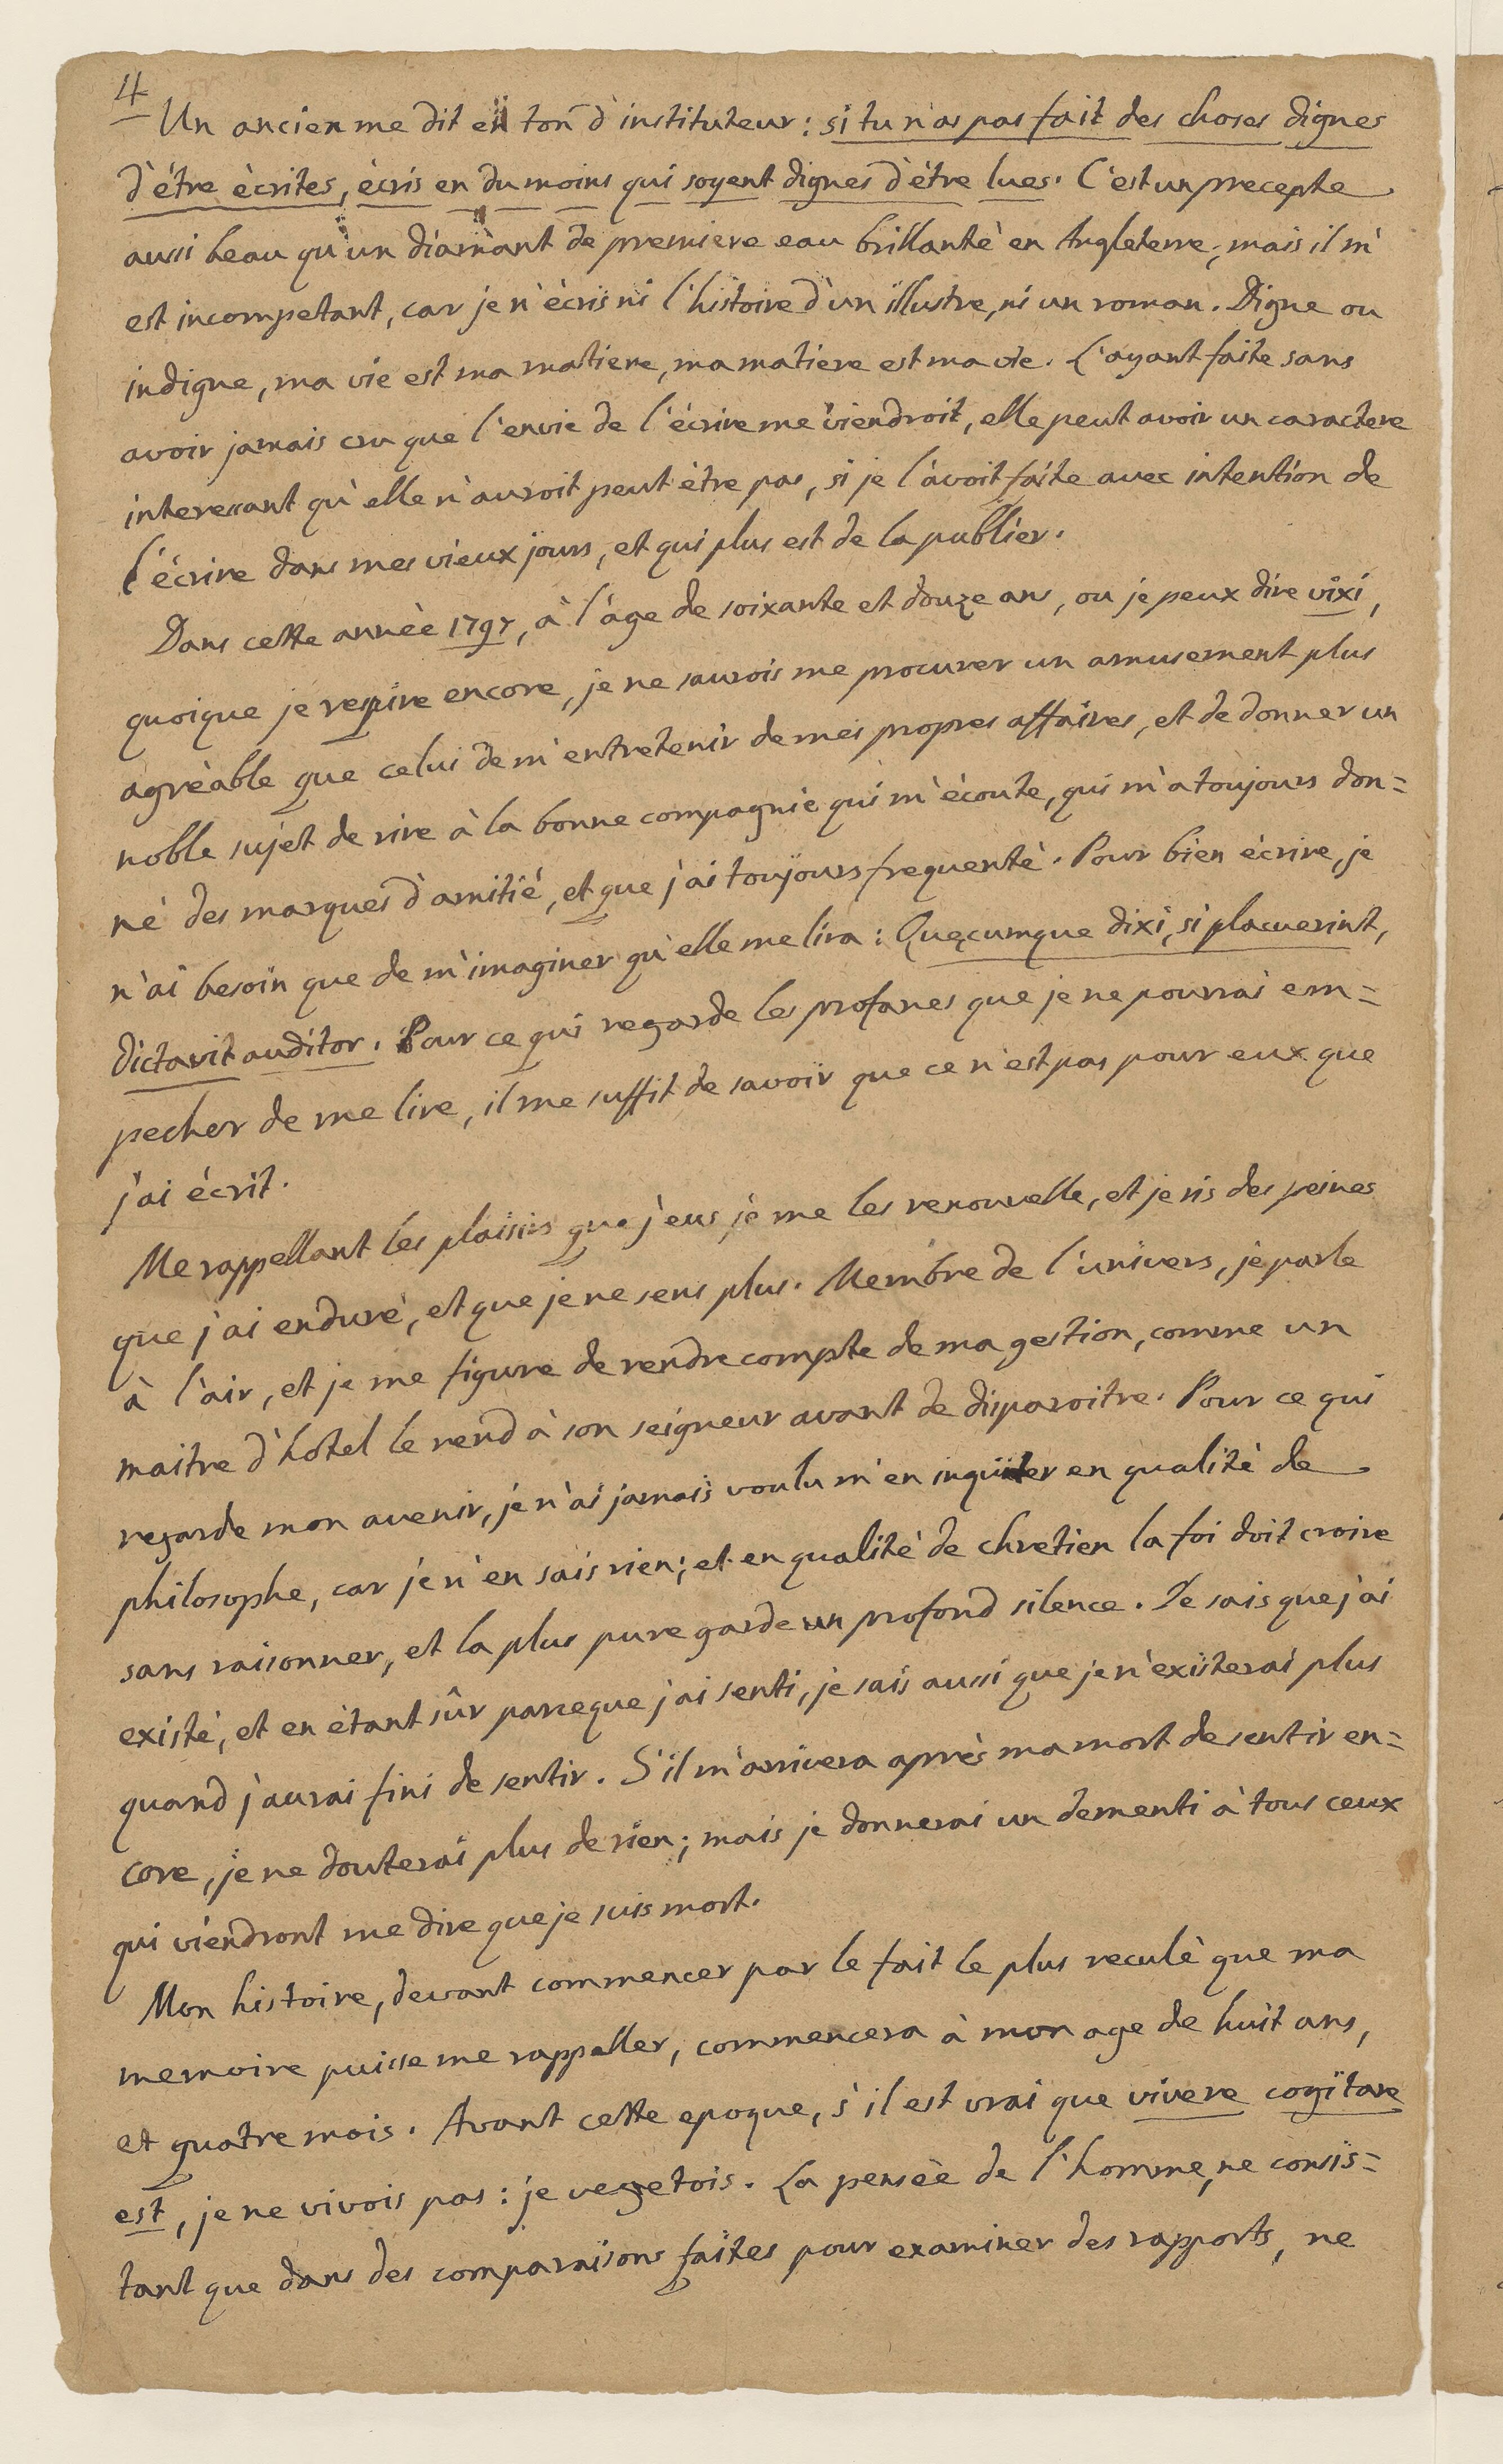 4
Un ancien me dit en ton d'instituteur: si tu n'as pas fait des choses dignes
d'être écrites, écris en du moins qui soyent dignes d'être lues. C'est un precepte
aussi beau qu'un diamant de premiere eau brillanté en Angleterre; mais il m'
est incompetant, car je n'écris ni l'histoire d'un illustre, ni un roman. Digne ou
indigne, ma vie est ma matiere, ma matiere est ma vie. L'ayant faite sans
avoir jamais cru que l'envie de l'écrire me viendroit, elle peut avoir un caractere
interessant qu'elle n'auroit peut être pas, si je l'avoit faite avec intention de
l'écrire dans mes vieux jours, et qui plus est de la publier.
Dans cette année 1797, à l'âge de soixante et douze ans, ou je peux dire vixi,
quoique je respire encore, je ne saurois me procurer un amusement plus
agréable que celui de m'entretenir de mes propres affaires, et de donner un
noble sujet de rire à la bonne compagnie qui m'écoute, qui m'a toujours don=
né des marques d'amitié, et que j'ai toujours frequenté. Pour bien écrire, je
n'ai besoin que de m'imaginer qu'elle me lira: Quęcumque dixi, si placuerint,
dictavit auditor. Pour ce qui regarde les profanes que je ne pourrai em=
pecher de me lire, il me suffit de savoir que ce n'est pas pour eux que
j'ai écrit.
Me rappellant les plaisirs que j'eus je me les renouvelle, et je ris des peines
que j'ai enduré, et que je ne sens plus. Membre de l'univers, je parle
à l'air, et je me figure de rendre compte de ma gestion, comme un
maitre d'hotel le rend à son seigneur avant de disparoitre. Pour ce qui
regarde mon avenir, je n'ai jamais voulu m'en inquiéter en qualité de
philosophe, car je n'en sais rien; et en qualité de chretien la foi doit croire
sans raisonner, et la plus pure garde un profond silence. Je sais que j'ai
existé, et en étant sûr parceque j'ai senti, je sais aussi que je n'existerai plus
quand j'aurai fini de sentir. S'il m'arrivera après ma mort de sentir en=
core, je ne douterai plus de rien; mais je donnerai un dementi à tous ceux
qui viendront me dire que je suis mort.
Mon histoire, devant commencer par le fait le plus reculé que ma
memoire puisse me rappeller, commencera à mon age de huit ans,
et quatre mois. Avant cette epoque, s'il est vrai que vivere cogitare
est, je ne vivois pas: je vegetois. La pensée de l'homme, ne consis=
tant que dans des comparaisons faites pour examiner des rapports, ne